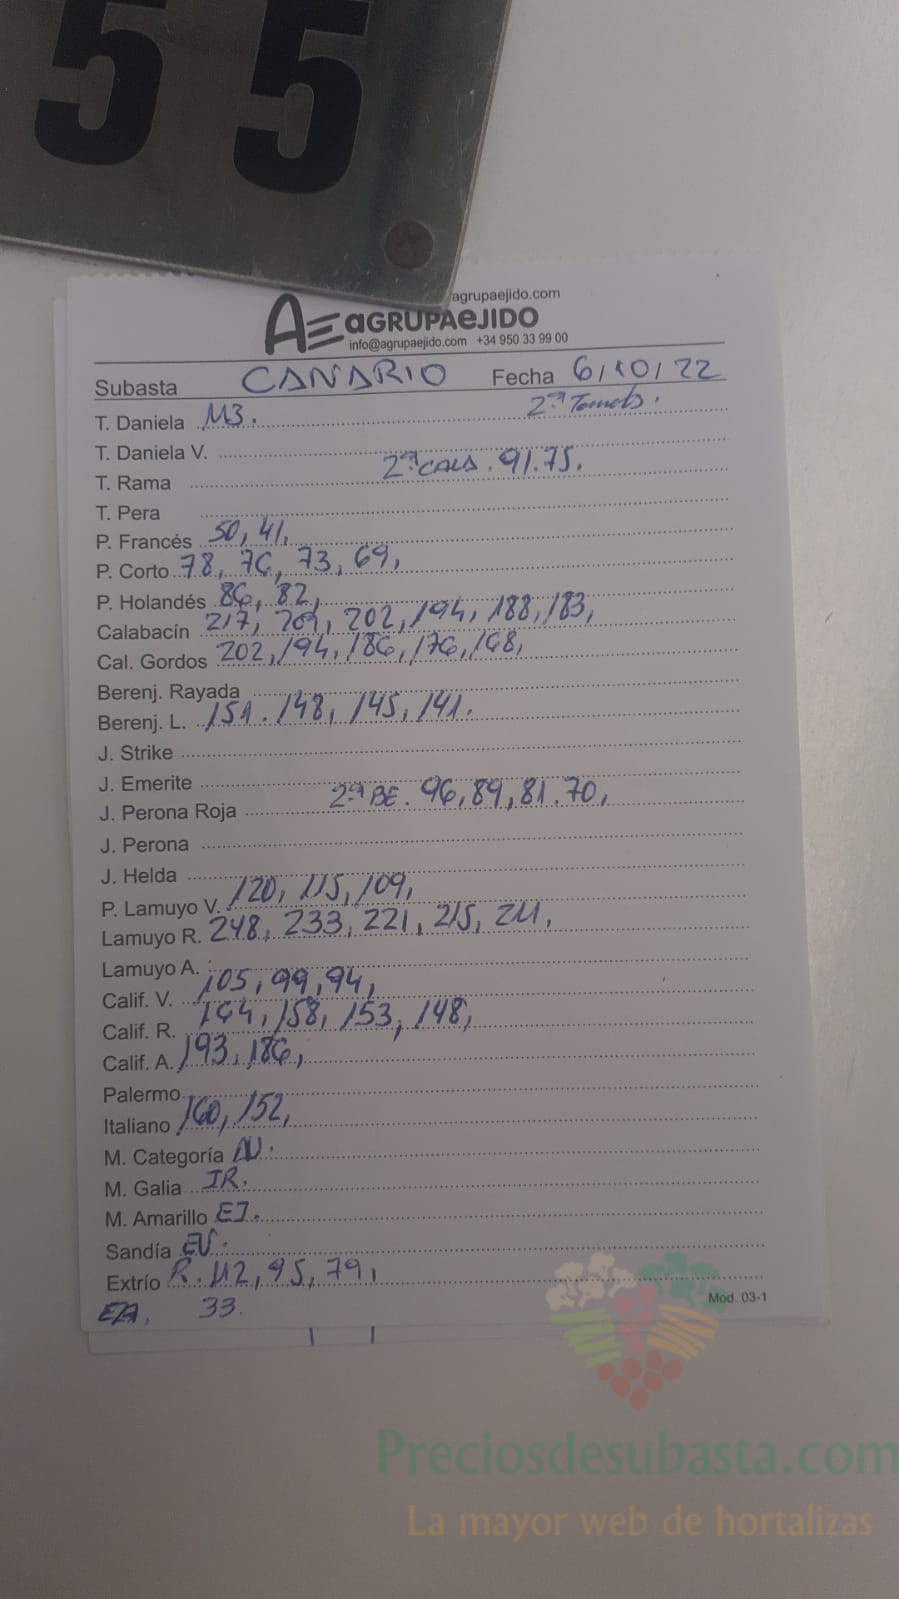 55
agrupaejido.com
AE aGRUPAeJIDO
info@agrupaejido.com +34 950 33 99 00
Subasta CANARIO Fecha 6/10/22
T. Daniela 113. 2ª
T. Daniela V.
T. Rama 2ª CALA. 91.75.
T. Pera
P. Francés 50, 41,
P. Corto 78, 76, 73, 69,
P. Holandés 86, 82,
Calabacín 217, 209, 202, 194, 188, 183,
Cal. Gordos 202, 194, 186, 176, 168,
Berenj. Rayada
Berenj. L. 151. 148, 145, 141.
J. Strike
J. Emerite
J. Perona Roja 2ª BE. 96, 89, 81. 70,
J. Perona
J. Helda
P. Lamuyo V. 120, 115, 109,
Lamuyo R. 248, 233, 221, 215, 211,
Lamuyo A.
Calif. V. 105, 99, 94,
Calif. R. 164, 158, 153, 148,
Calif. A. 193, 186,
Palermo
Italiano 160, 152,
M. Categoría
M. Galia IR.
M. Amarillo EJ.
Sandía
Extrío R. 112, 95, 79,
33.
Mod. 03-1
Preciosdesubasta.com
La mayor web de hortalizas